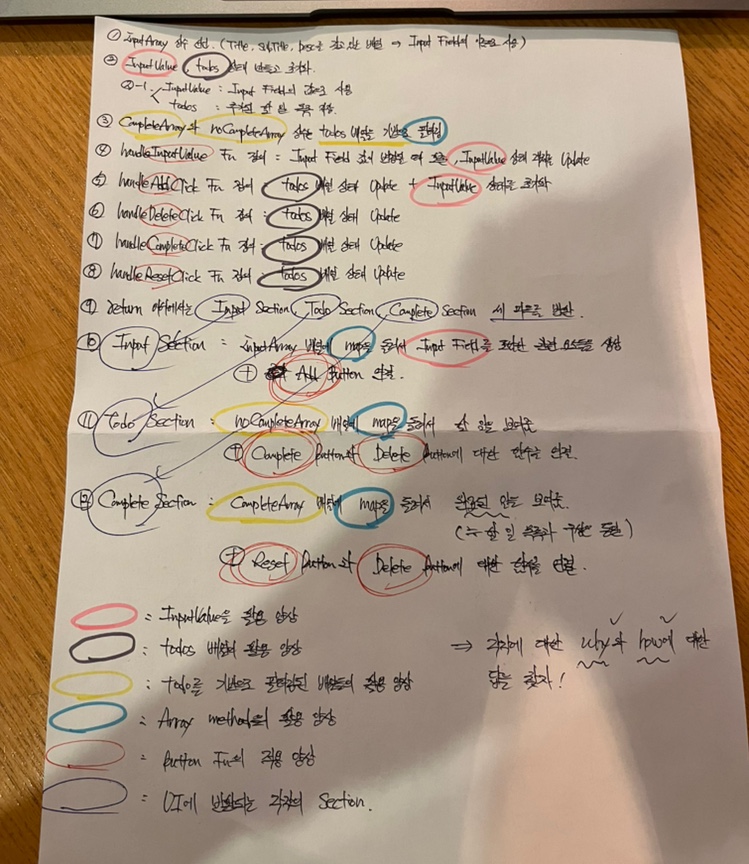 ① InputArray 상수 선언. (Title, SubTitle, Desc를 갖고 있는 배열 ⇒ Input Field의 이름으로 사용)
② InputValue, todos 상태 만들고 초기화.
②-1. InputValue : Input Field의 값으로 사용
todos : 추가된 할 일 목록 저장.
③ CompleteArray와 noCompleteArray 상수는 todos 배열을 기반으로 필터링
④ handleInputValue Fn 정의 : Input Field 값이 변경될 때 호출, InputValue 상태 값을 Update
⑤ handleAddClick Fn 정의 : todos 배열 상태 Update + InputValue 상태를 초기화
⑥ handleDeleteClick Fn 정의 : todos 배열 상태 Update
⑦ handleCompleteClick Fn 정의 : todos 배열 상태 Update
⑧ handleResetClick Fn 정의 : todos 배열 상태 Update
⑨ return 아래에서는 Input Section, Todo Section, Complete Section 세 파트로 반환.
⑩ Input Section : InputArray 배열에 map을 돌려서 Input Field를 포함한 관련 요소들을 생성
+ Add Button 연결.
⑪ Todo Section : noCompleteArray 배열에 map을 돌려서 할 일을 보여줌
+ Complete Button과 Delete Button에 대한 함수을 연결.
⑫ Complete Section : CompleteArray 배열에 map을 돌려서 완료된 일을 보여줌.
(누 할 일 목록과 구성은 동일)
+ Reset Button과 Delete Button에 대한 함수을 연결.
: InputValue을 활용 양상
: todos 배열의 활용 양상
: Todo를 기반으로 필터링된 배열들의 적용 양상
: Array method의 활용 양상
: Button Fn의 적용 양상
: UI에 반환되는 각각의 Section.
⇒ 각각에 대한 why와 how에 대한
답을 찾자!